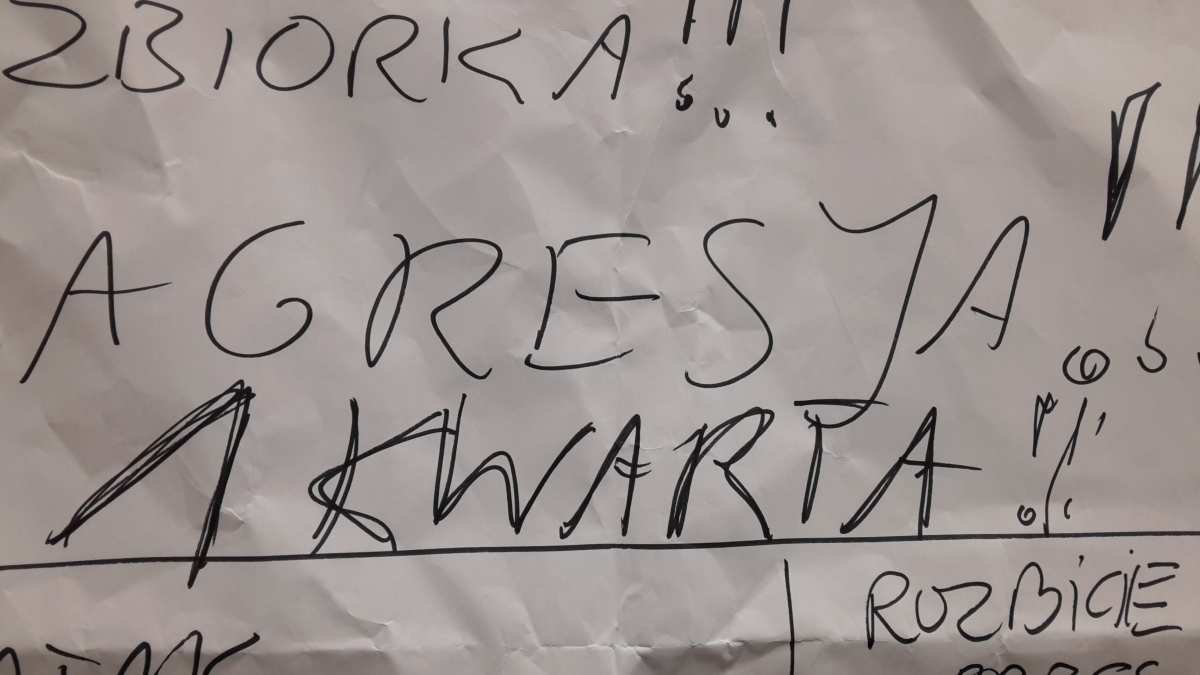 ZBIORKA!!!
AGRESJA!!
1 KWARTA!!!
ROZBICIE